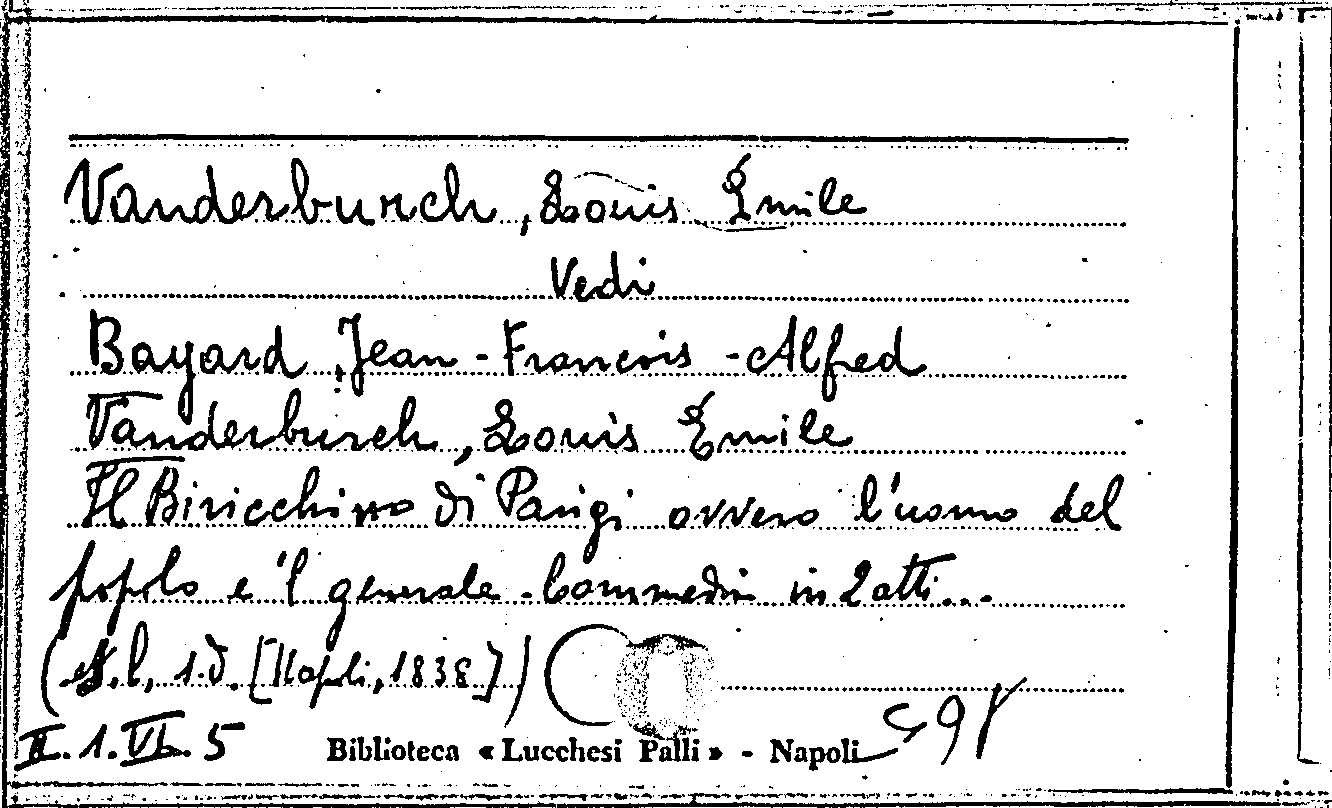 Vanderburch, Louis Emile
Vedi
Bayard, Jean-François-Alfred
Vanderburch, Louis Emile
Il Biricchino di Parigi ovvero l'uomo del
popolo e 'l generale. Commedia in 2 atti...
(s.l, s.d. [Napoli, 1838])
II.1.VI. 5 Biblioteca « Lucchesi Palli » - Napoli